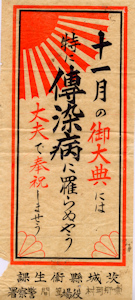 十一月の御大典には
特に傳染病に罹らぬやう
大夫で奉祝しませう
茨城縣衛生課
警察署